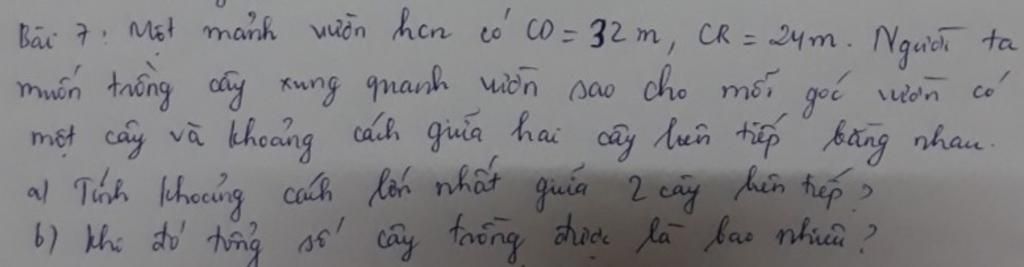 Bài 7: Một mảnh vườn hcn có CD = 32 m, CR = 24m. Người ta
muốn trồng cây xung quanh vườn sao cho mỗi góc vườn có
một cây và khoảng cách giữa hai cây liên tiếp bằng nhau.
a) Tính khoảng cách lớn nhất giữa 2 cây liên tiếp?
b) khi đó tổng số cây trồng được là bao nhiêu?